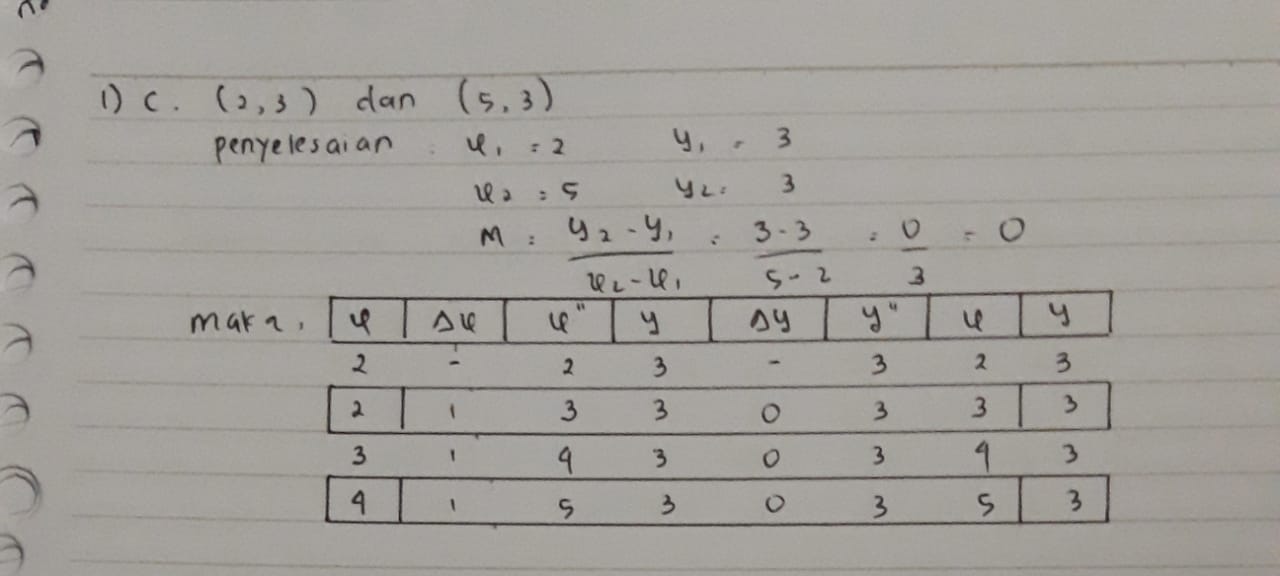 1) c. (2,3) dan (5,3)
penyelesaian : x₁ = 2 y₁ = 3
x₂ = 5 y₂ = 3
M = y₂ - y₁ / x₂ - x₁ = 3 - 3 / 5 - 2 = 0 / 3 = 0
maka, x Δx x" y Δy y" x y
2 - 2 3 - 3 2 3
2 1 3 3 0 3 3 3
3 1 4 3 0 3 4 3
4 1 5 3 0 3 5 3